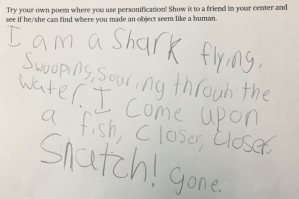 Try your own poem where you use personification! Show it to a friend in your center and
see if he/she can find where you made an object seem like a human.
I am a Shark flying,
Swooping, souring through the
water. I come upon
a fish, closer, closer
Snatch! gone.